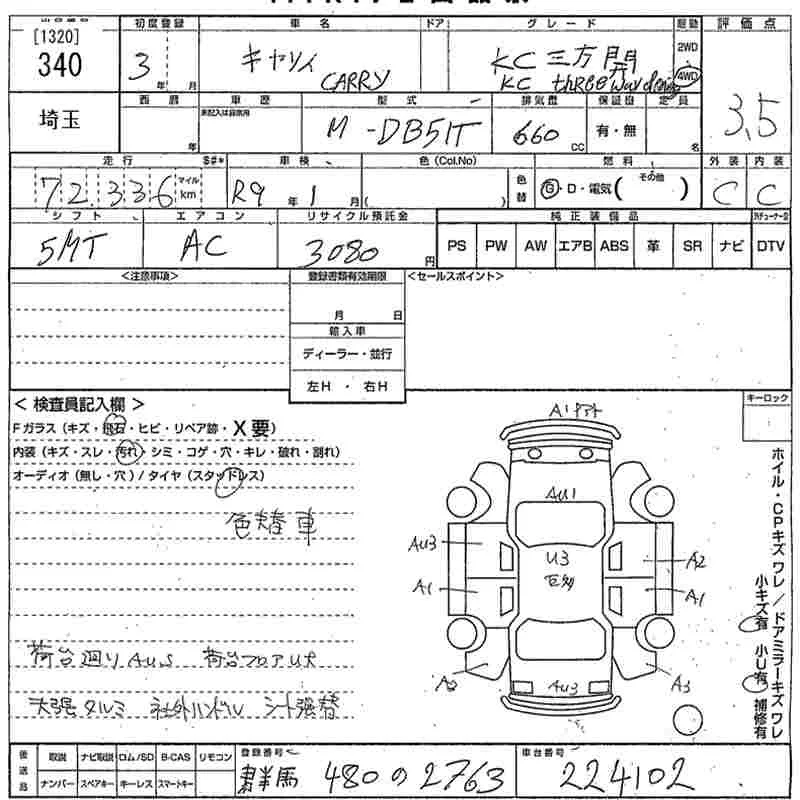 [1320]
340
初度登録 車名 ドア グレード 駆動 評価点
3 年 月 キャリィ CARRY KC 三方開 2WD 4WD
KC three way
3.5
埼玉
西暦 車歴 型式 排気量 保証書 定員
年 未記入は自家用 M-DB51T 660 CC 有・無 名
走行 S#* 車検 色(Col.No) 燃料 外装 内装
72,336 マイル km R9 年 1 月 ( ) 色替 G・D・電気( その他 ) C C
シフト エアコン リサイクル預託金 純正装備品
5MT AC 3080 円 PS PW AW エアB ABS 革 SR ナビ DTV
<注意事項> 登録書類有効期限 <セールスポイント>
月 日
輸入車
ディーラー・並行
左H・右H
<検査員記入欄> キーロック
Fガラス(キズ・飛石・ヒビ・リペア跡・X要)
内装(キズ・スレ・汚れ・シミ・コゲ・穴・キレ・破れ・割れ)
オーディオ(無し・穴)/タイヤ(スタッドレス)
色替車
荷台廻りAUS 荷台フロアU大
天張タルミ 社外ハンドル シート張替
A1アト
AU1
AU3 U3 A2
巨多
A1 A1
A2 AU3 A3
ホイル・CPキズワレ/ドアミラーキズワレ
小キズ有 小U有 補修有
後送品 取説 ナビ取説 ロム/SD B-CAS リモコン 登録番号 車台番号
ナンバー スペアキー キーレス スマートキー 群馬 480 の 2763 224102